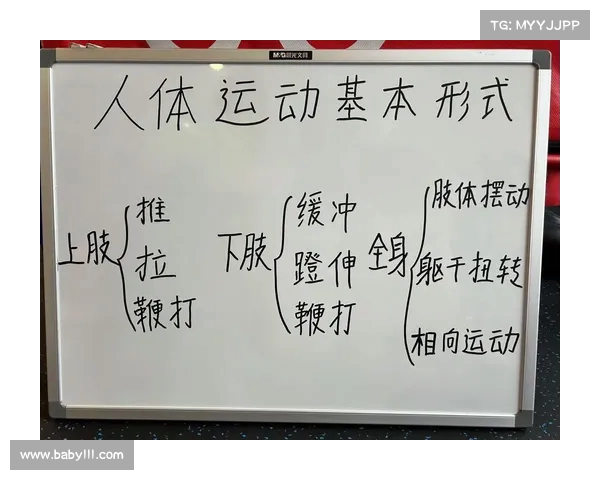 TG: MYYJJPP
M&G晨光文具
人体运动基本形式
上肢
推
拉
鞭打
下肢
缓冲
蹬伸
鞭打
全身
肢体摆动
躯干扭转
相向运动
www.babylll.com